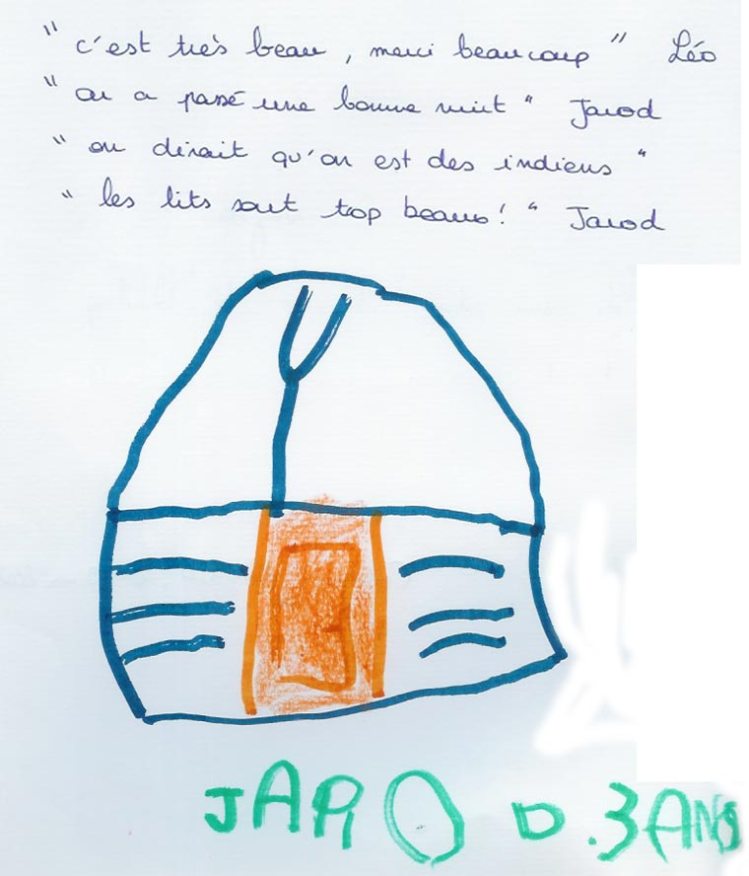 "c'est très beau, merci beaucoup" Léo
"on a passé une bonne nuit" Jarod
"on dirait qu'on est des indiens"
"les lits sont trop beaux!" Jarod
JAROD.3ANS